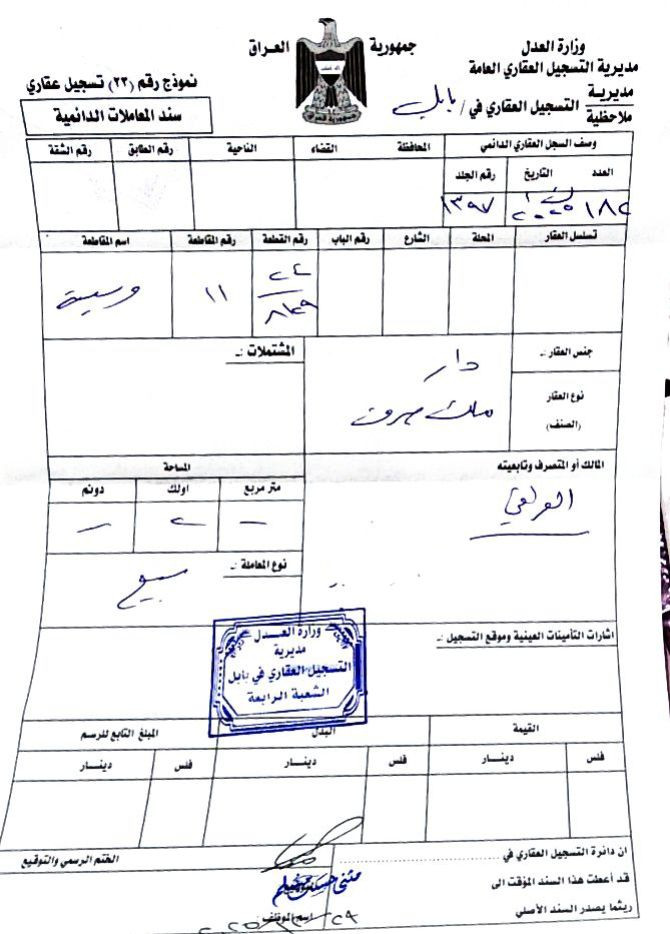 جمهورية العراق
وزارة العدل
مديرية التسجيل العقاري العامة
مديرية
ملاحظية
التسجيل العقاري في / بابل
نموذج رقم (٢٣) تسجيل عقاري
سند المعاملات الدائمية
وصف السجل العقاري الدائمي المحافظة القضاء الناحية رقم الطابق رقم الشقة
العدد التاريخ رقم الجلد
١٨٢ ٢٠٢٥ ١٣٩٧
تسلسل العقار المحلة الشارع رقم الباب رقم القطعة رقم المقاطعة اسم المقاطعة
١١
جنس العقار :ـ دار المشتملات :ـ
نوع العقار
(الصنف)
ملك صرف
المالك أو المتصرف وتابعيته المساحة
متر مربع اولك دونم
العراقي
ـ ٢ ـ
نوع المعاملة :ـ
بيع
اشارات التأمينات العينية وموقع التسجيل :ـ
وزارة العـدل
مديرية
التسجيل العقاري في بابل
الشعبة الرابعة
القيمة البدل المبلغ التابع للرسم
فلس دينـار فلس دينـار فلس دينـار
ان دائرة التسجيل العقاري في
الختم الرسمي والتوقيع
قد أعطت هذا السند المؤقت الى
ريثما يصدر السند الأصلي
اسم الموظف